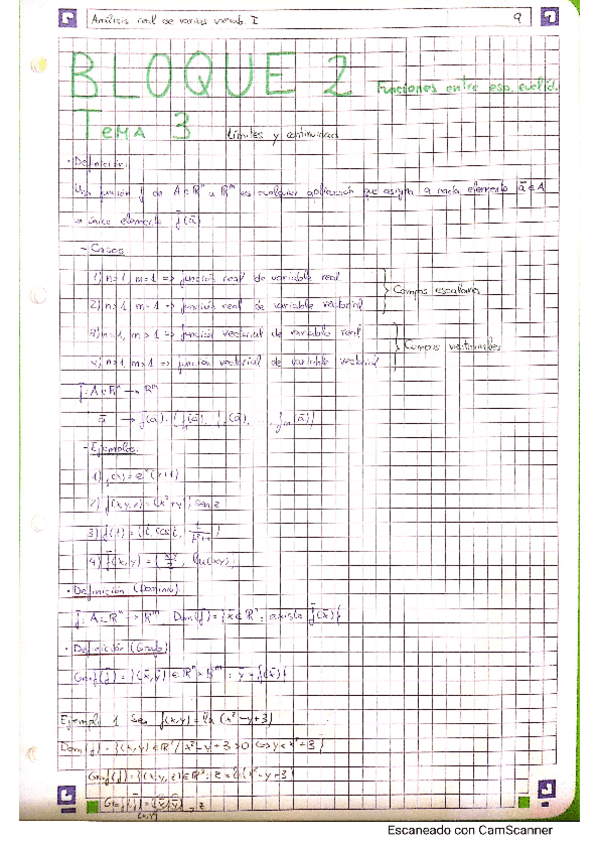 Análisis real de varias variab. I 9
BLOQUE 2 Funciones entre esp. euclid.
TEMA 3 Límites y continuidad
· Definición:
Una función f de A⊂ℝⁿ a ℝᵐ es cualquier aplicación que asigna a cada elemento ā∈A
un único elemento f̄(ā)
- Casos
1) n=1, m=1 => función real de variable real
2) n>1, m=1 => función real de variable vectorial } Campos escalares
3) n=1, m>1 => función vectorial de variable real
4) n>1, m>1 => función vectorial de variable vectorial } Campos vectoriales
f̄: A⊂ℝⁿ → ℝᵐ
ā → f̄(ā)=(f₁(ā), f₂(ā), ..., fₘ(ā))
- Ejemplos
2) f(x,y,z) = (x²+y) sen z
3) f̄(t) =
4) f̄(x,y) =
· Definición (Dominio)
f̄: A⊂ℝⁿ → ℝᵐ Dom(f̄)={x̄∈ℝⁿ: existe f̄(x̄)}
· Definición (Grafo)
Graf(f̄) = {(x̄,ȳ)∈ℝⁿ×ℝᵐ: ȳ=f̄(x̄)}
Ejemplo 1 Sea f(x,y)=ln(x²-y+3)
Dom(f) = {(x,y)∈ℝ²/x²-y+3>0 <=> y<x²+3}
Graf(f)={(x,y,z)∈ℝ³: z=ln(x²-y+3)}
Escaneado con CamScanner